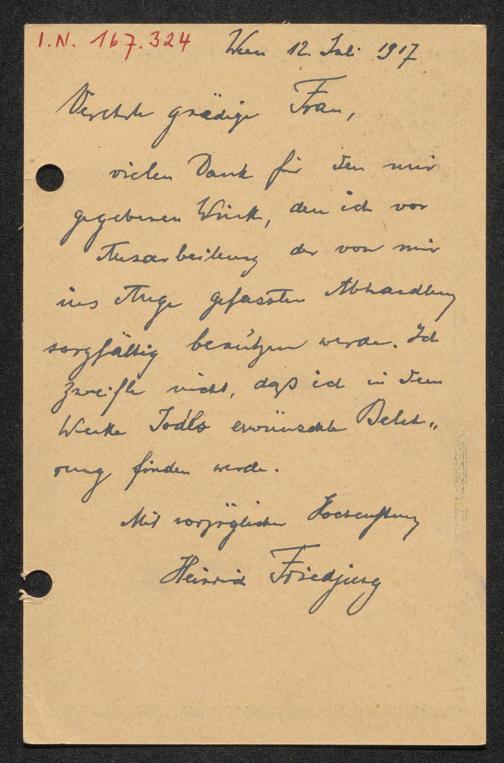 I.N. 167.324
Wien 12. Juli 1917
Verehrte gnädige Frau,
vielen Dank für den mir
gegebenen Wink, den ich vor
Ausarbeitung der von mir
ins Auge gefassten Abhandlung
sorgfältig benützen werde. Ich
zweifle nicht, daß ich in dem
Werke Jodls erwünschte Beleh„
rung finden werde.
Mit vorzüglicher Hochachtung
Heinrich Friedjung